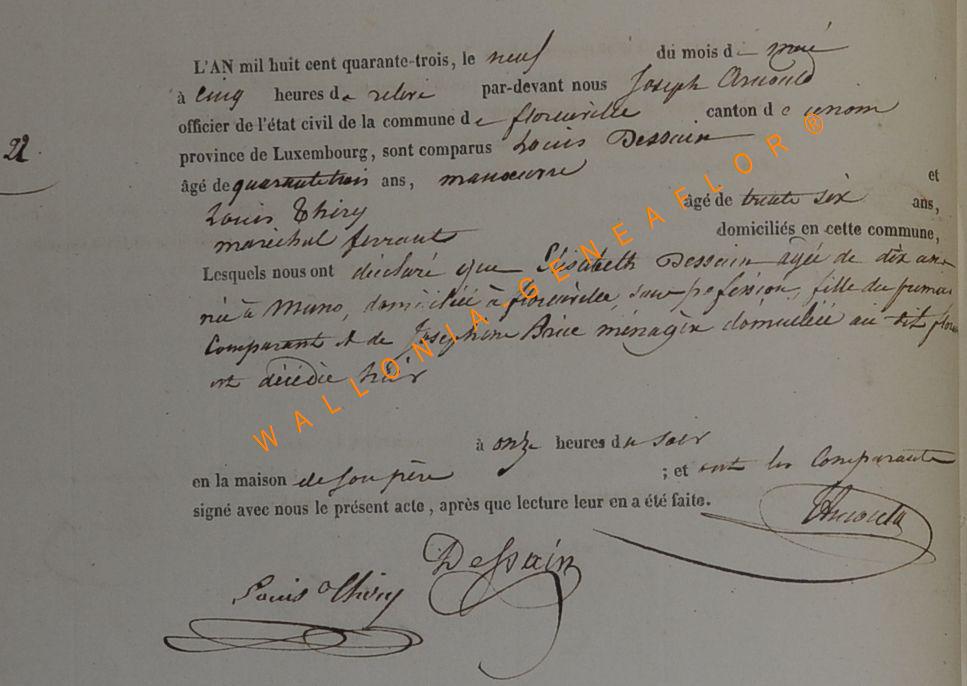 L'AN mil huit cent quarante-trois, le neuf du mois de mai
à cinq heures de relevé par-devant nous Joseph Arnould
officier de l'état civil de la commune de florenville canton d
province de Luxembourg, sont comparus Louis Dessain
22.
âgé de quarante trois ans, manoeuvre et
Louis Thiry âgé de trente six ans,
maréchal ferrant domiciliés en cette commune,
Lesquels nous ont déclaré que Elisabeth Dessain agée de dix ans
née à Muno, domiciliée à florenville, sans profession, fille du premier
Comparant et de Josephine Brice ménagère domiciliée au dit
est décédée hier
à onze heures du soir
en la maison de son père ; et ont les Comparants
signé avec nous le présent acte, après que lecture leur en a été faite.
JArnould
Dessain
Louis Thiry
WALLONIA GENEAFLOR ®